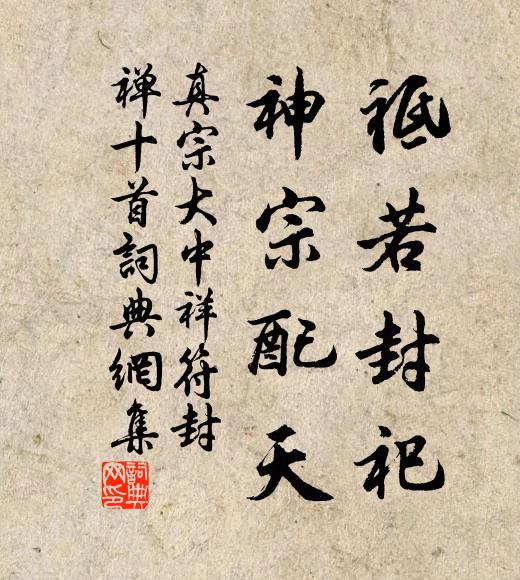 祗若封祀
神宗配天
真宗大中祥符封
禅十首詞典網集
詞典
网印